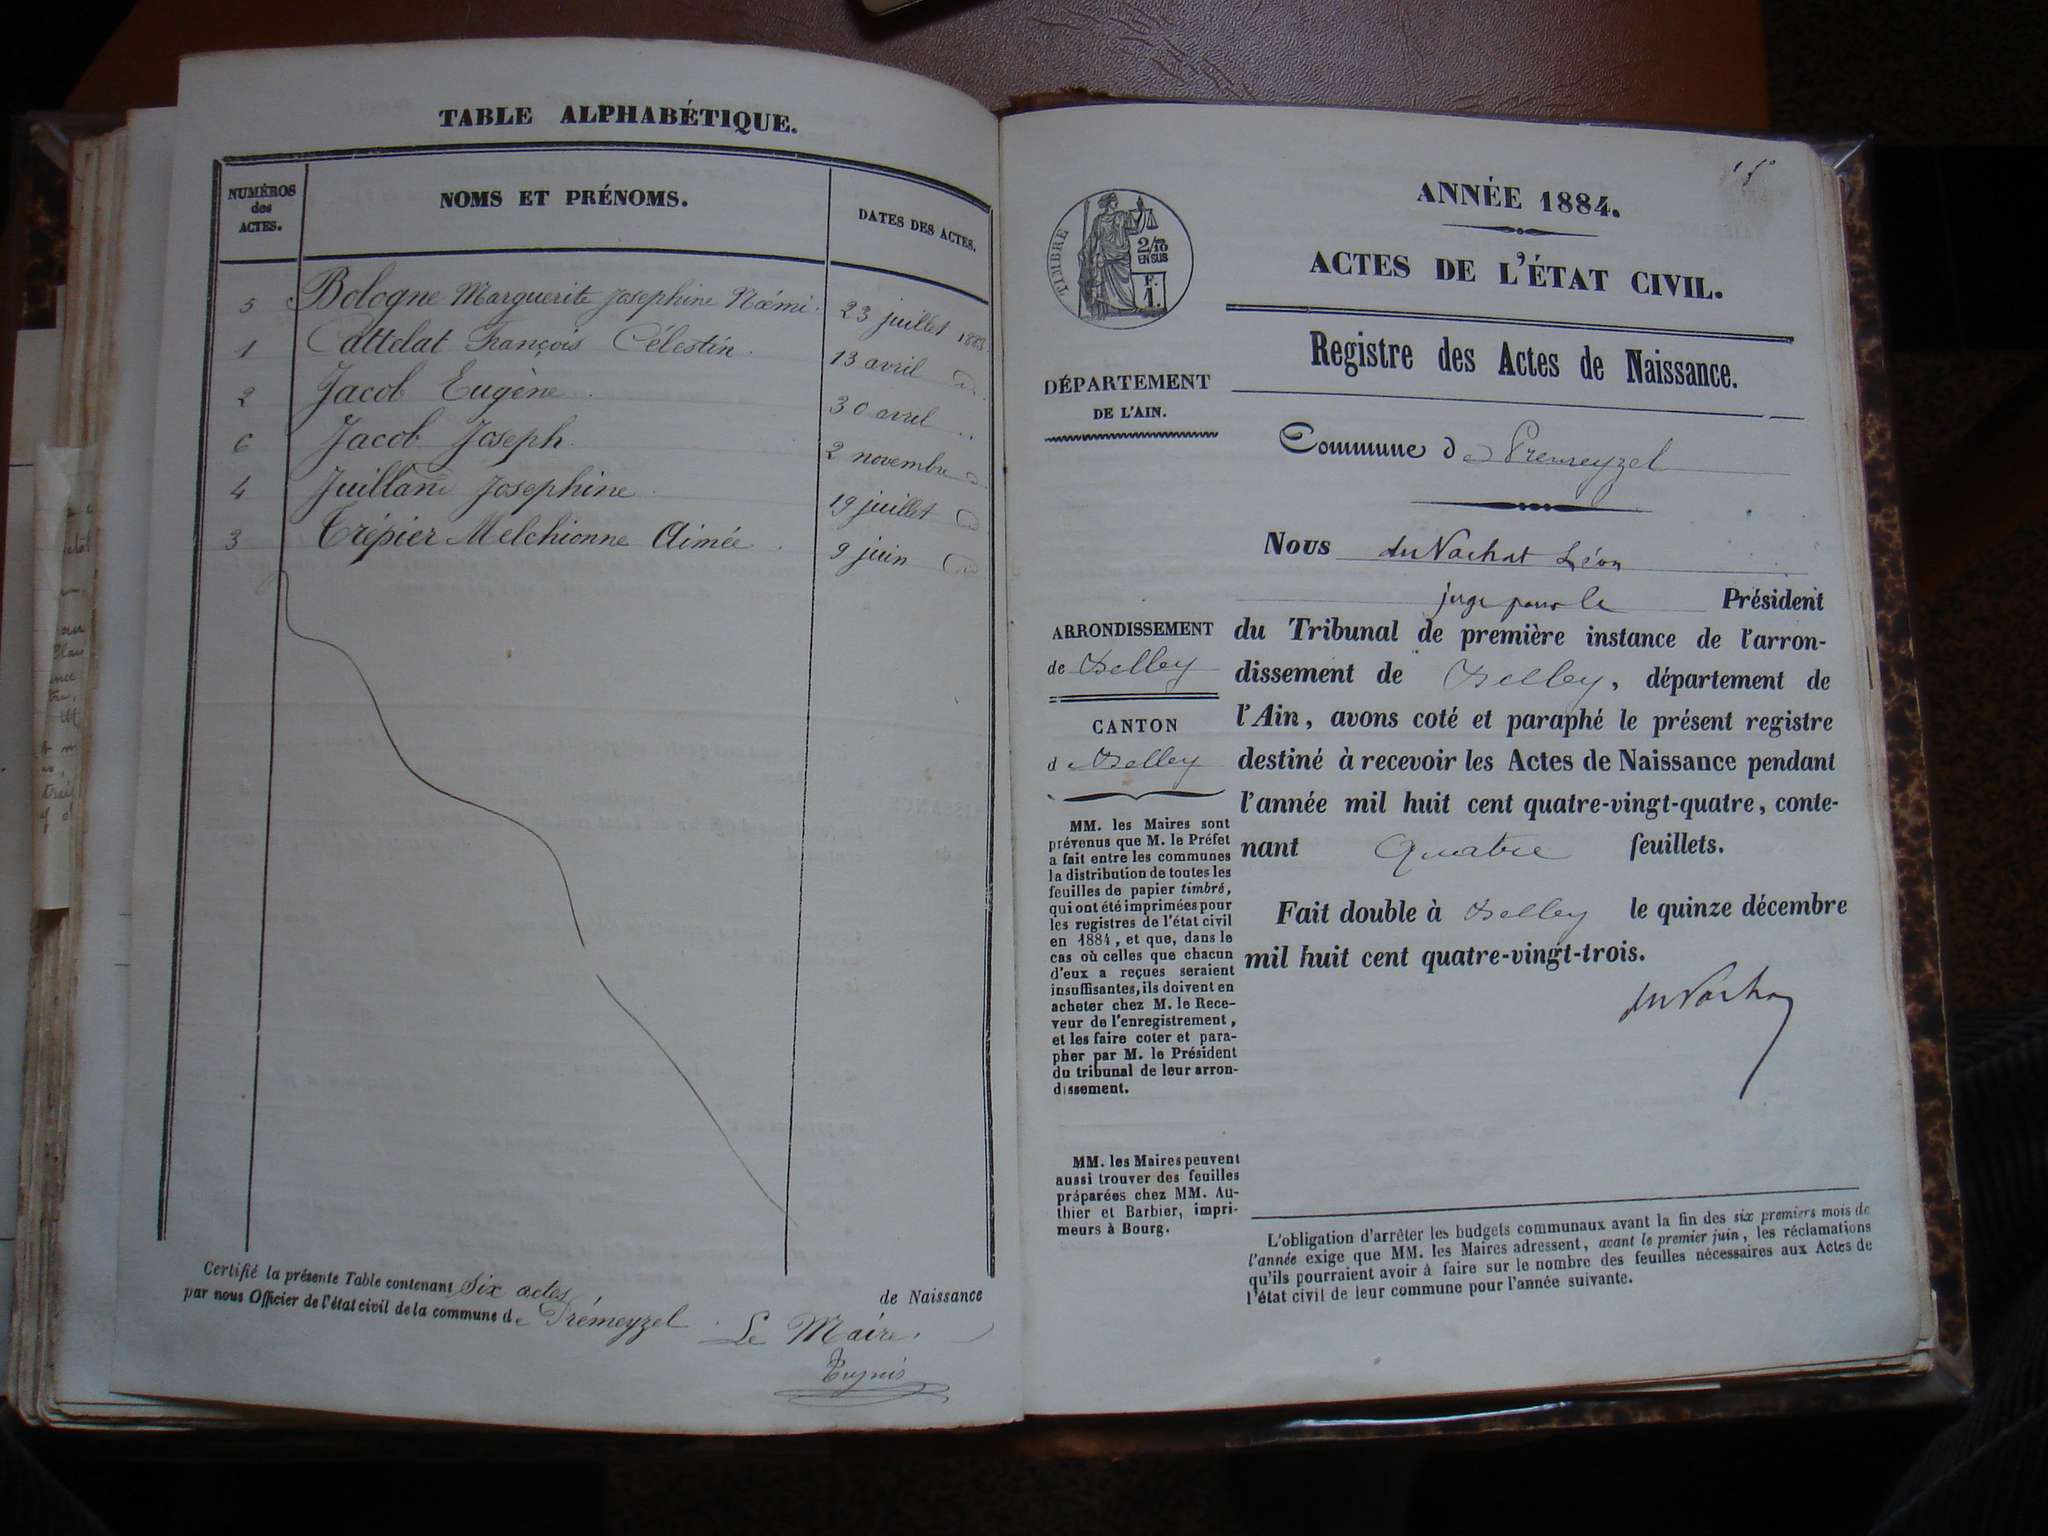 TABLE ALPHABÉTIQUE.
NUMÉROS
des
ACTES.
NOMS ET PRÉNOMS.
DATES DES ACTES.
5 Bologne Marguerite Joséphine Noémi. 23 juillet 1883
1 Cattelat François Célestin. 13 avril
2 Jacob Eugène. 30 avril
6 Jacob Joseph. 2 novembre
4 Juilland Josephine. 19 juillet
3 Trépier Melchionne Aimée. 9 juin
Certifié la présente Table contenant Six actes de Naissance
par nous Officier de l'état civil de la commune de Prémeyzel. Le Maire.
15
ANNÉE 1884.
ACTES DE L'ÉTAT CIVIL.
TIMBRE
2/10
EN SUS
F.
1.
Registre des Actes de Naissance.
DÉPARTEMENT
DE L'AIN.
Commune de Premeyzel
Nous du Nachat Léon
juge pour le Président
du Tribunal de première instance de l'arron-
dissement de Belley, département de
l'Ain, avons coté et paraphé le présent registre
destiné à recevoir les Actes de Naissance pendant
l'année mil huit cent quatre-vingt-quatre, conte-
nant Quatre feuillets.
Fait double à Belley le quinze décembre
mil huit cent quatre-vingt-trois.
du Nacha
ARRONDISSEMENT
de Belley
CANTON
de Belley
MM. les Maires sont
prévenus que M. le Préfet
a fait entre les communes
la distribution de toutes les
feuilles de papier timbré,
qui ont été imprimées pour
les registres de l'état civil
en 1884, et que, dans le
cas où celles que chacun
d'eux a reçues seraient
insuffisantes, ils doivent en
acheter chez M. le Rece-
veur de l'enregistrement,
et les faire coter et para-
pher par M. le Président
du tribunal de leur arron-
dissement.
MM. les Maires peuvent
aussi trouver des feuilles
préparées chez MM. Au-
thier et Barbier, impri-
meurs à Bourg.
L'obligation d'arrêter les budgets communaux avant la fin des six premiers mois de
l'année exige que MM. les Maires adressent, avant le premier juin, les réclamations
qu'ils pourraient avoir à faire sur le nombre des feuilles nécessaires aux Actes de
l'état civil de leur commune pour l'année suivante.